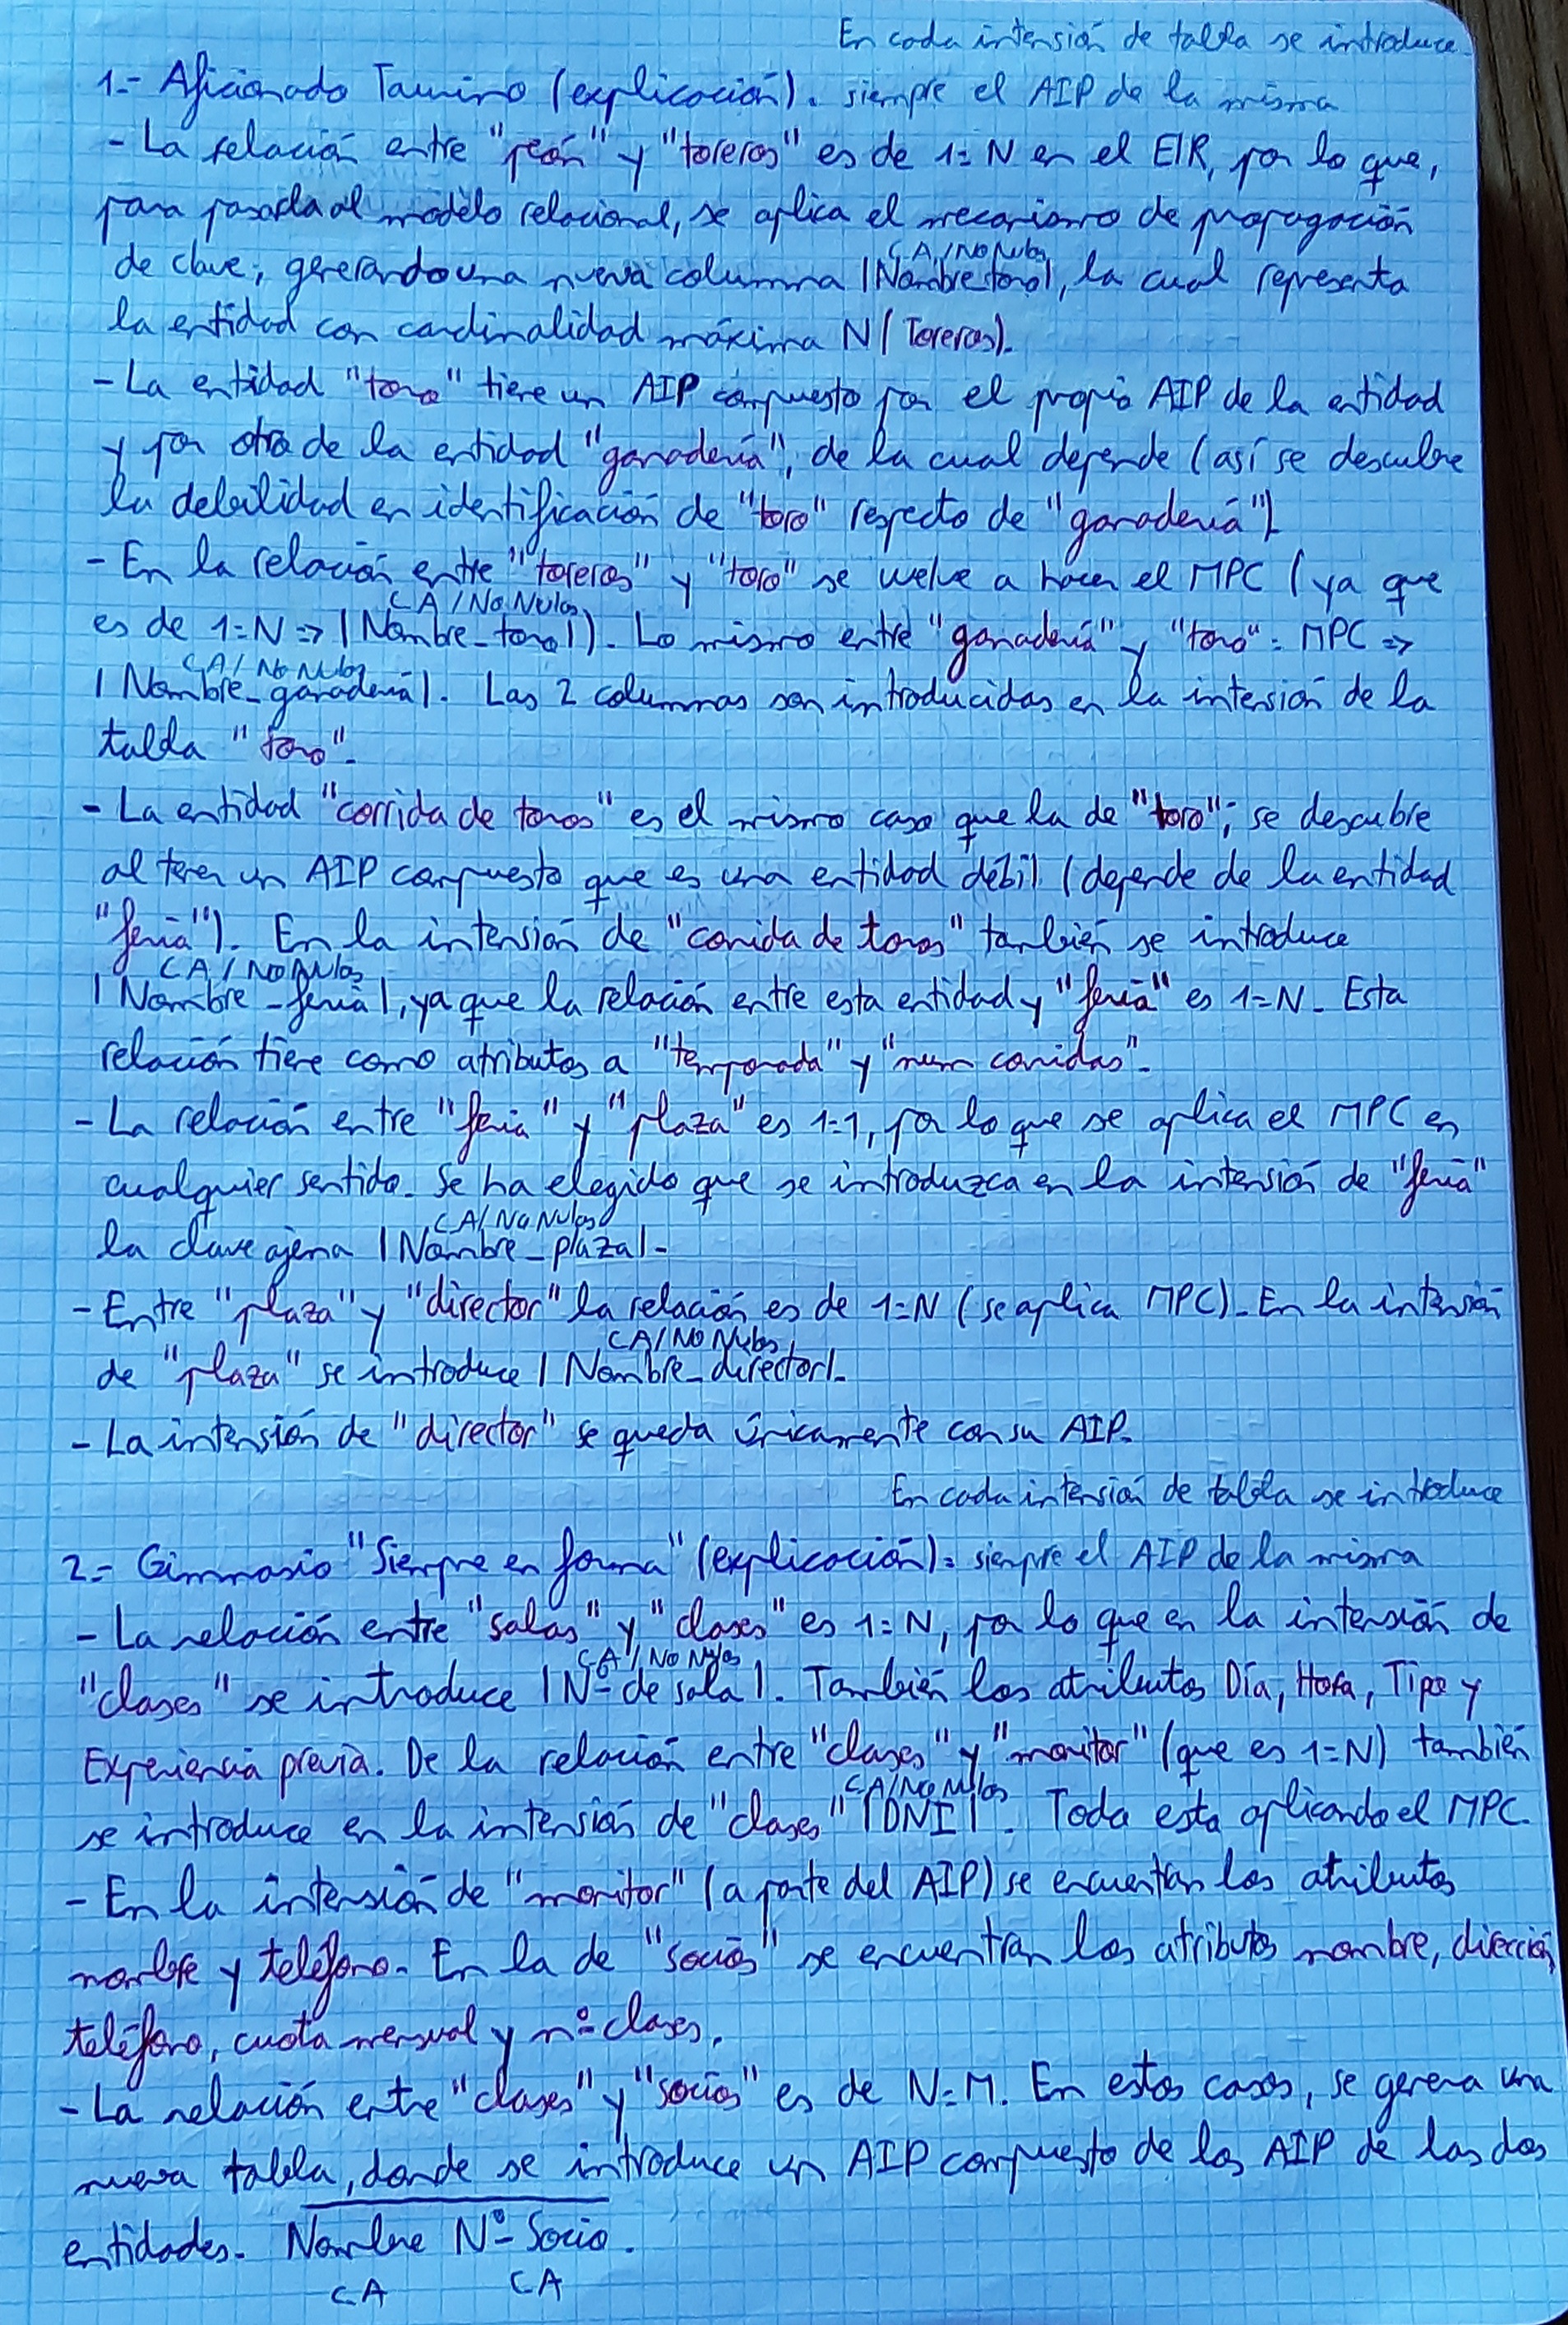 En cada intensión de tabla se introduce
1.- Aficionado Taurino (explicación): siempre el AIP de la misma
- La relación entre "peón" y "toreros" es de 1:N en el E/R, por lo que,
para pasarla al modelo relacional, se aplica el mecanismo de propagación
CA/No Nulos
de clave, generando una nueva columna |Nombre_toro|, la cual representa
la entidad con cardinalidad máxima N (Toreros).
- La entidad "toro" tiene un AIP compuesto por el propio AIP de la entidad
y por otro de la entidad "ganadería", de la cual depende (así se descubre
la debilidad en identificación de "toro" respecto de "ganadería").
- En la relación entre "toreros" y "toro" se vuelve a hacer el MPC (ya que
CA/No Nulos
es de 1:N => |Nombre_toro|). Lo mismo entre "ganadería" y "toro": MPC =>
CA/No Nulos
|Nombre_ganadería|. Las 2 columnas son introducidas en la intensión de la
tabla "toro".
- La entidad "corrida de toros" es el mismo caso que la de "toro"; se descubre
al tener un AIP compuesto que es una entidad débil (depende de la entidad
"feria"). En la intensión de "corrida de toros" también se introduce
CA/No Nulos
|Nombre_feria|, ya que la relación entre esta entidad y "feria" es 1:N. Esta
relación tiene como atributos a "temporada" y "num corridas".
- La relación entre "feria" y "plaza" es 1:1, por lo que se aplica el MPC en
cualquier sentido. Se ha elegido que se introduzca en la intensión de "feria"
CA/No Nulos
la clave ajena |Nombre_plaza|.
- Entre "plaza" y "director" la relación es de 1:N (se aplica MPC). En la intensión
CA/No Nulos
de "plaza" se introduce |Nombre_director|.
- La intensión de "director" se queda únicamente con su AIP.
En cada intensión de tabla se introduce
2.- Gimnasio "Siempre en forma" (explicación): siempre el AIP de la misma
- La relación entre "salas" y "clases" es 1:N, por lo que en la intensión de
CA/No Nulos
"clases" se introduce |Nº de sala|. También los atributos Día, Hora, Tipo y
Experiencia previa. De la relación entre "clases" y "monitor" (que es 1:N) también
CA/No Nulos
se introduce en la intensión de "clases" |DNI|. Todo esto aplicando el MPC.
- En la intensión de "monitor" (a parte del AIP) se encuentran los atributos
nombre y teléfono. En la de "socios" se encuentran los atributos nombre, dirección,
teléfono, cuota mensual y nº clases.
- La relación entre "clases" y "socios" es de N:M. En estos casos, se genera una
nueva tabla, donde se introduce un AIP compuesto de los AIP de las dos
entidades. Nombre Nº Socio.
CA CA